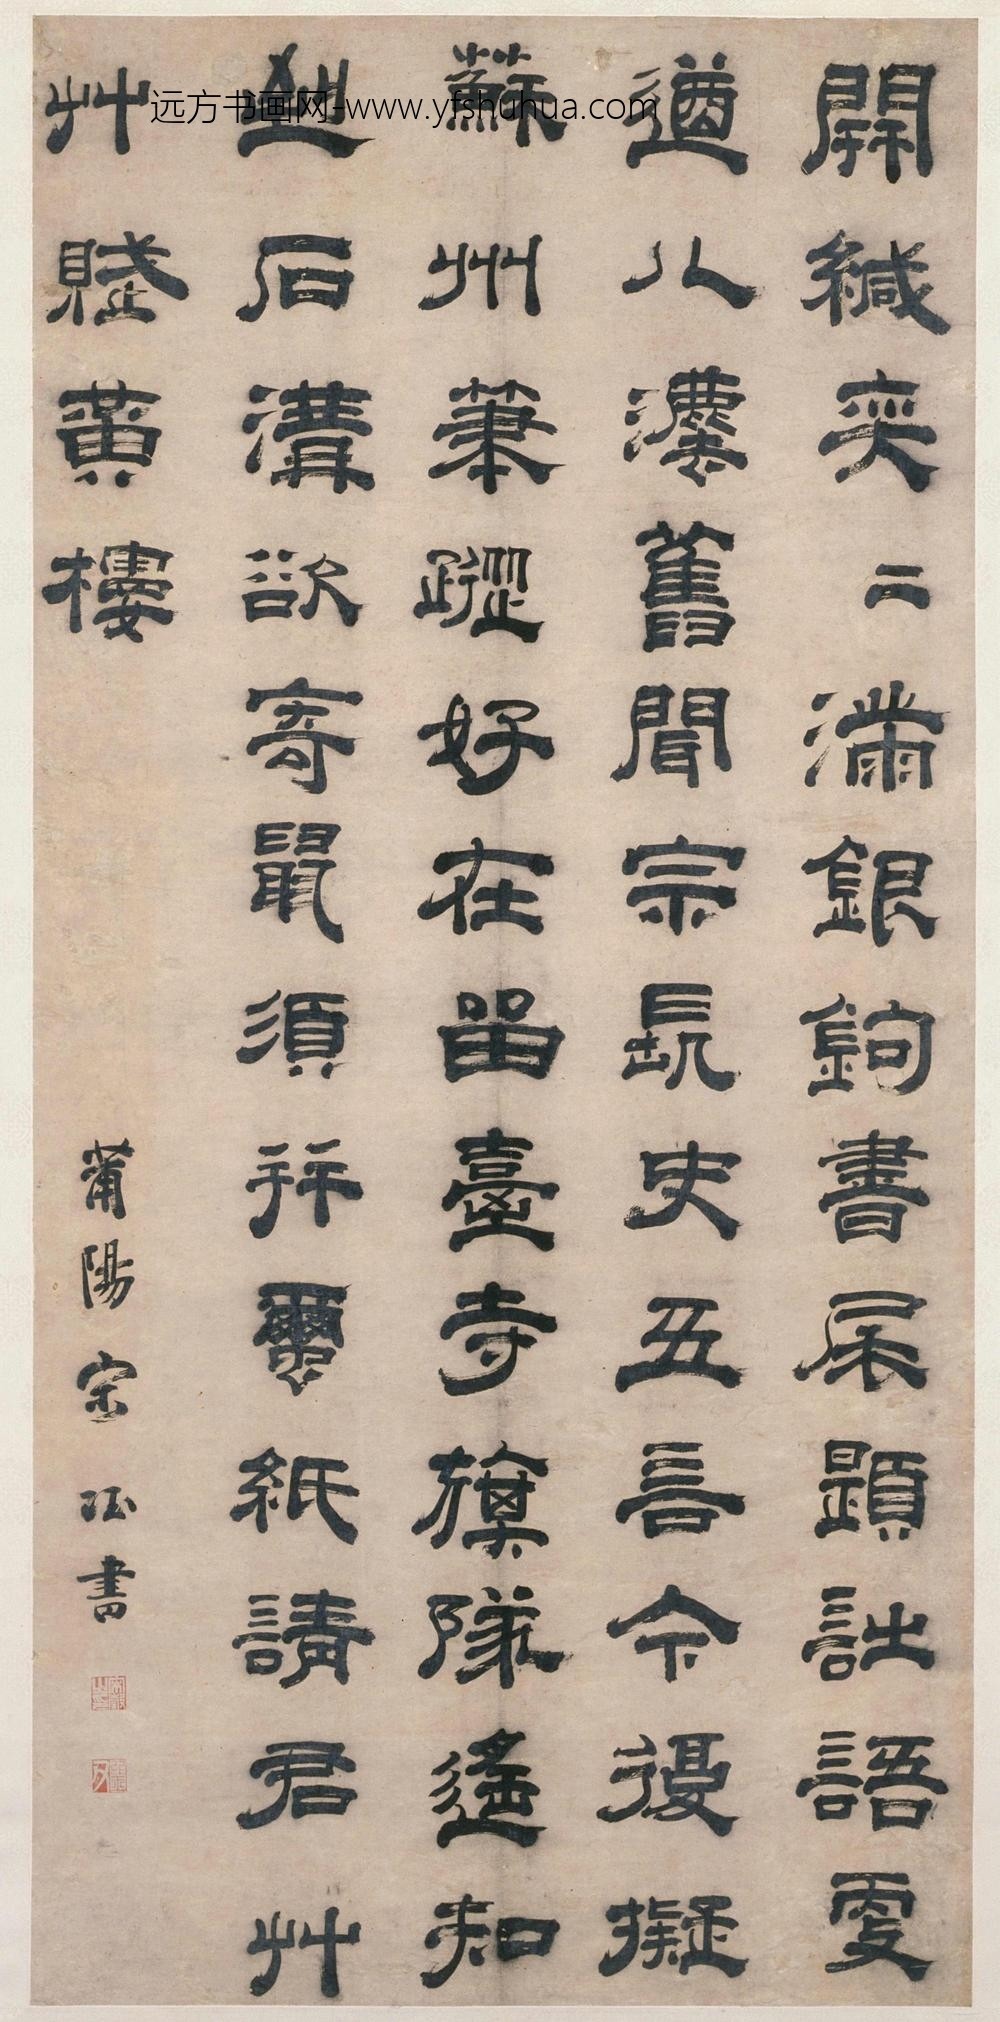 開緘奕二滿銀鉤書尾題詩語更
遒八法舊聞宗長史五言今復擬
蘇州筆蹤好在留臺寺旗隊遙知
到石溝欲寄鼠須并繭紙請君艸
艸賦黃樓
莆陽宋珏書
远方书画网-www.yfshuhua.com